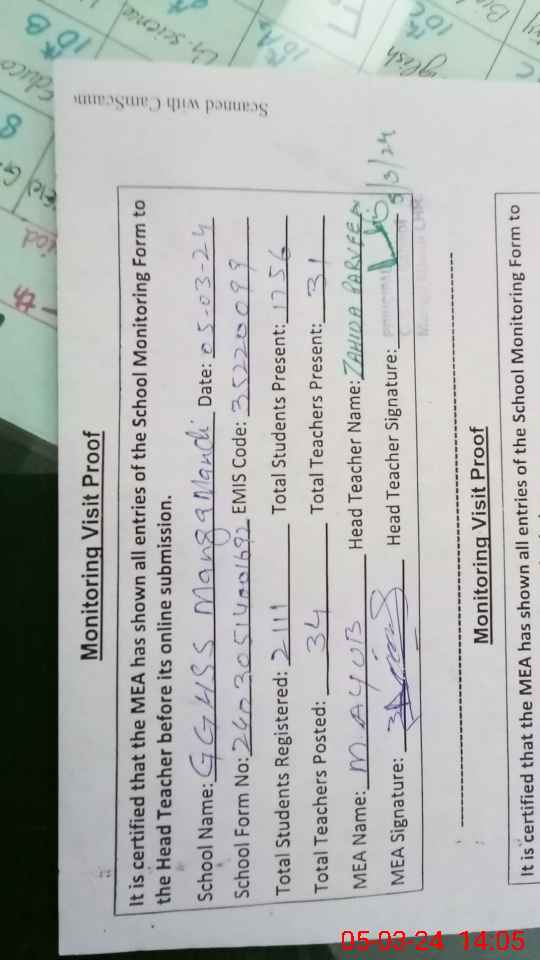 Scanned with CamScann
Monitoring Visit Proof
It is certified that the MEA has shown all entries of the School Monitoring Form to
the Head Teacher before its online submission.
School Name: GGHSS Manga Mandi Date: 05-03-24
School Form No: EMIS Code: 35220099
Total Students Registered: 2111 Total Students Present: 1756
Total Teachers Posted: 34 Total Teachers Present: 31
MEA Name: M AYUB Head Teacher Name: ZAHIDA PARVEEN
MEA Signature: Head Teacher Signature: 5/3/24
Monitoring Visit Proof
It is certified that the MEA has shown all entries of the School Monitoring Form to
05-03-24 14:05